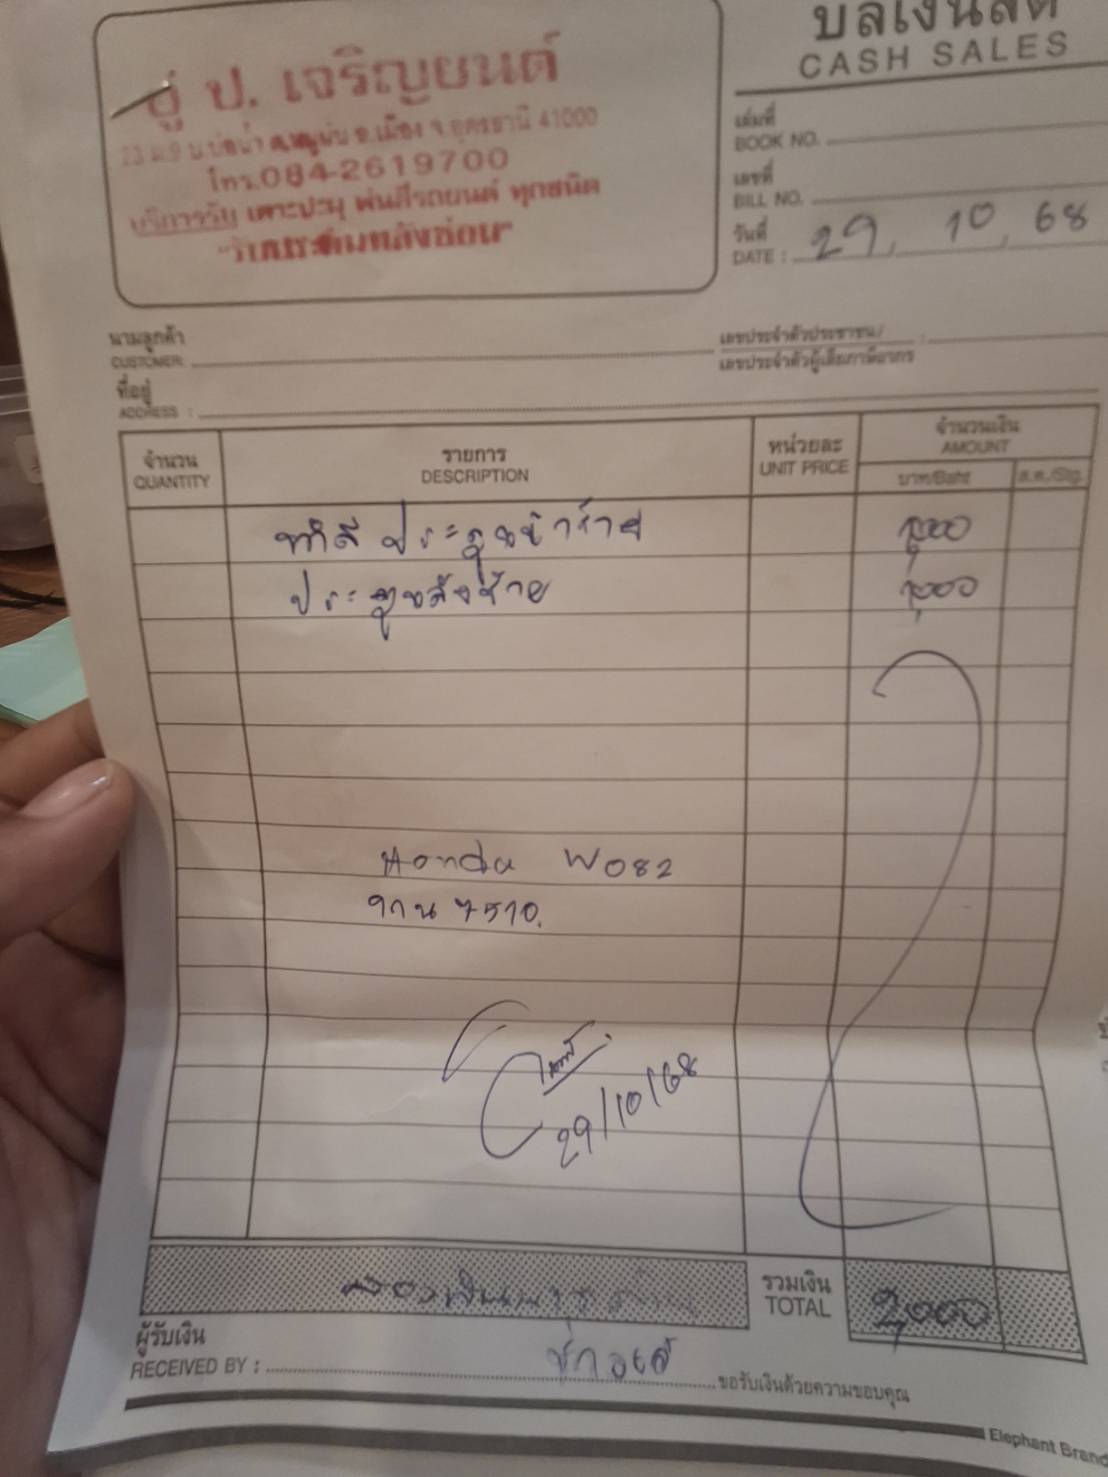 บิลเงินสด
CASH SALES
อู่ ป. เจริญยนต์
23 ม.9 อ.เมือง จ.อุดรธานี 41000
โทร.084-2619700
บริการรับ เคาะปะผุ พ่นสีรถยนต์ ทุกชนิด
เล่มที่
BOOK NO.
เลขที่
BILL NO.
วันที่
DATE : 29, 10, 68
นามลูกค้า
CUSTOMER:
เลขประจำตัวประชาชน/
เลขประจำตัวผู้เสียภาษีอากร
ที่อยู่
ADDRESS :
จำนวน
QUANTITY
รายการ
DESCRIPTION
หน่วยละ
UNIT PRICE
จำนวนเงิน
AMOUNT
บาท/Baht
ส.ต./Stg.
ทำสี ประตูหน้าซ้าย 1,000
ประตูหลังซ้าย 1,000
Honda W082
งาน 7510.
29/10/68
สองพันบาทถ้วน
รวมเงิน
TOTAL
2,000
ผู้รับเงิน
RECEIVED BY :
ขอรับเงินด้วยความขอบคุณ
Elephant Brand